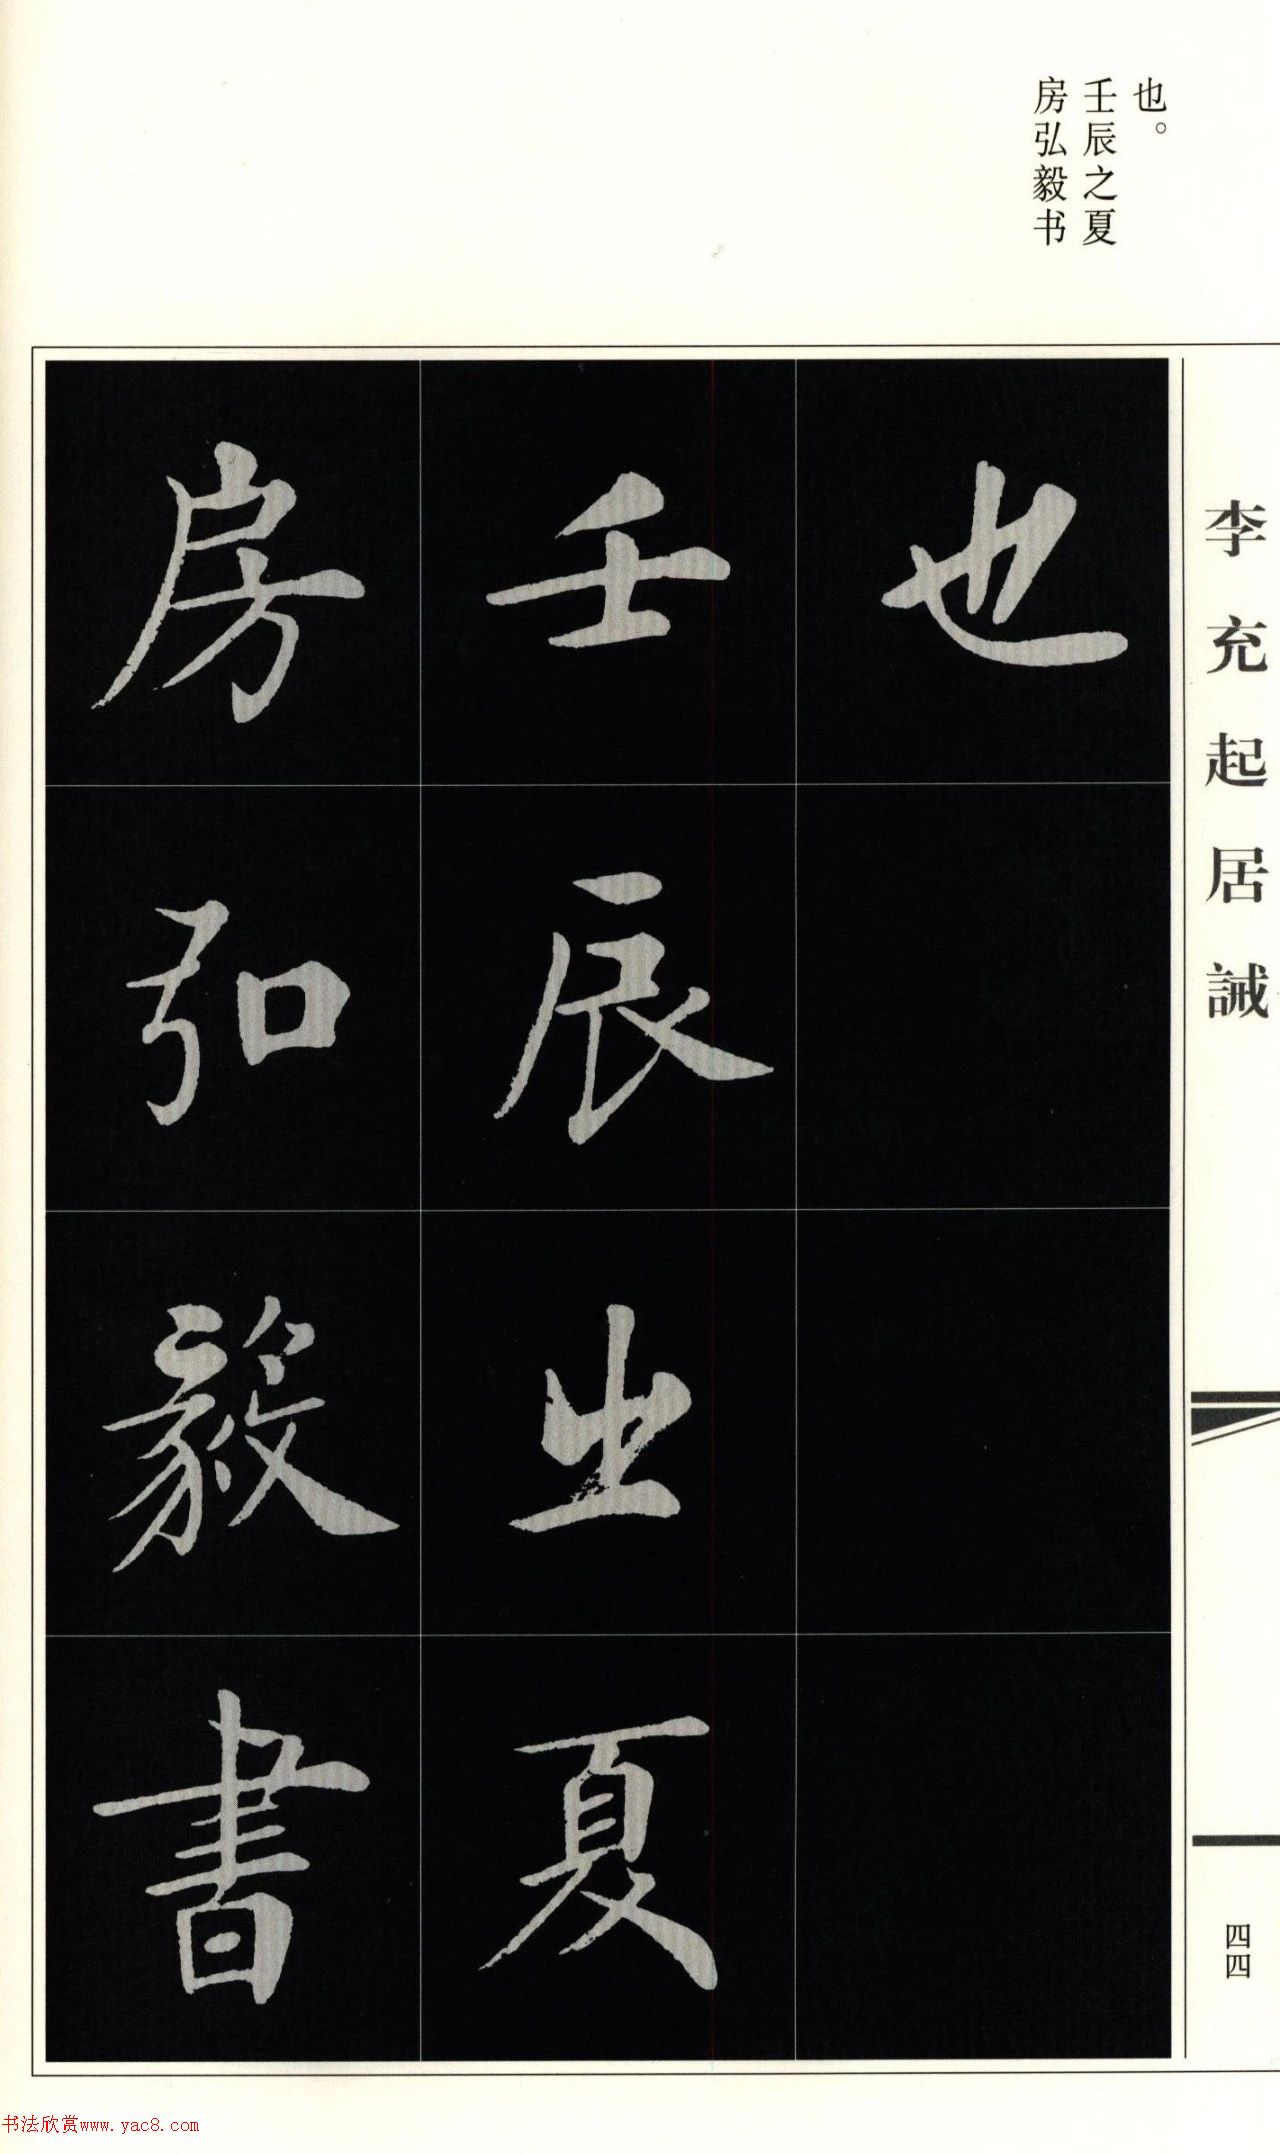 也。
壬辰之夏
房弘毅书
李充起居誡
也
壬辰之夏
房弘毅書
四四
书法欣赏www.yac8.com